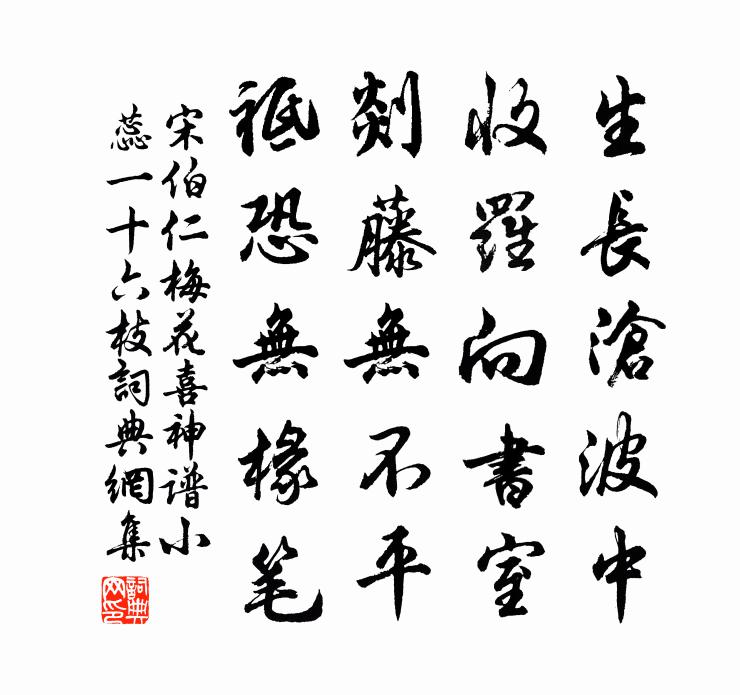 生長滄波中
收羅向書室
剡藤無不平
祗恐無椽笔
宋伯仁梅花喜神谱小
蕊一十六枝詞典網集
詞典
网印